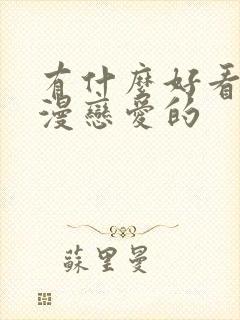 有什麼好看
漫戀愛的
蘇里曼